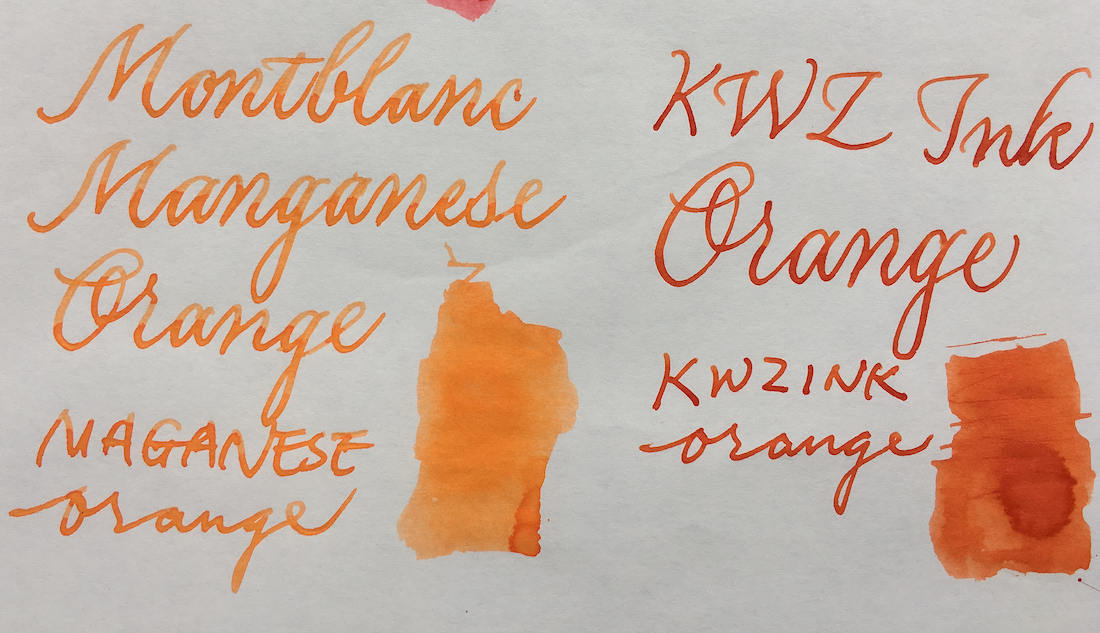 Montblanc
Manganese
Orange
MAGANESE
orange
KWZ Ink
Orange
KWZINK
orange